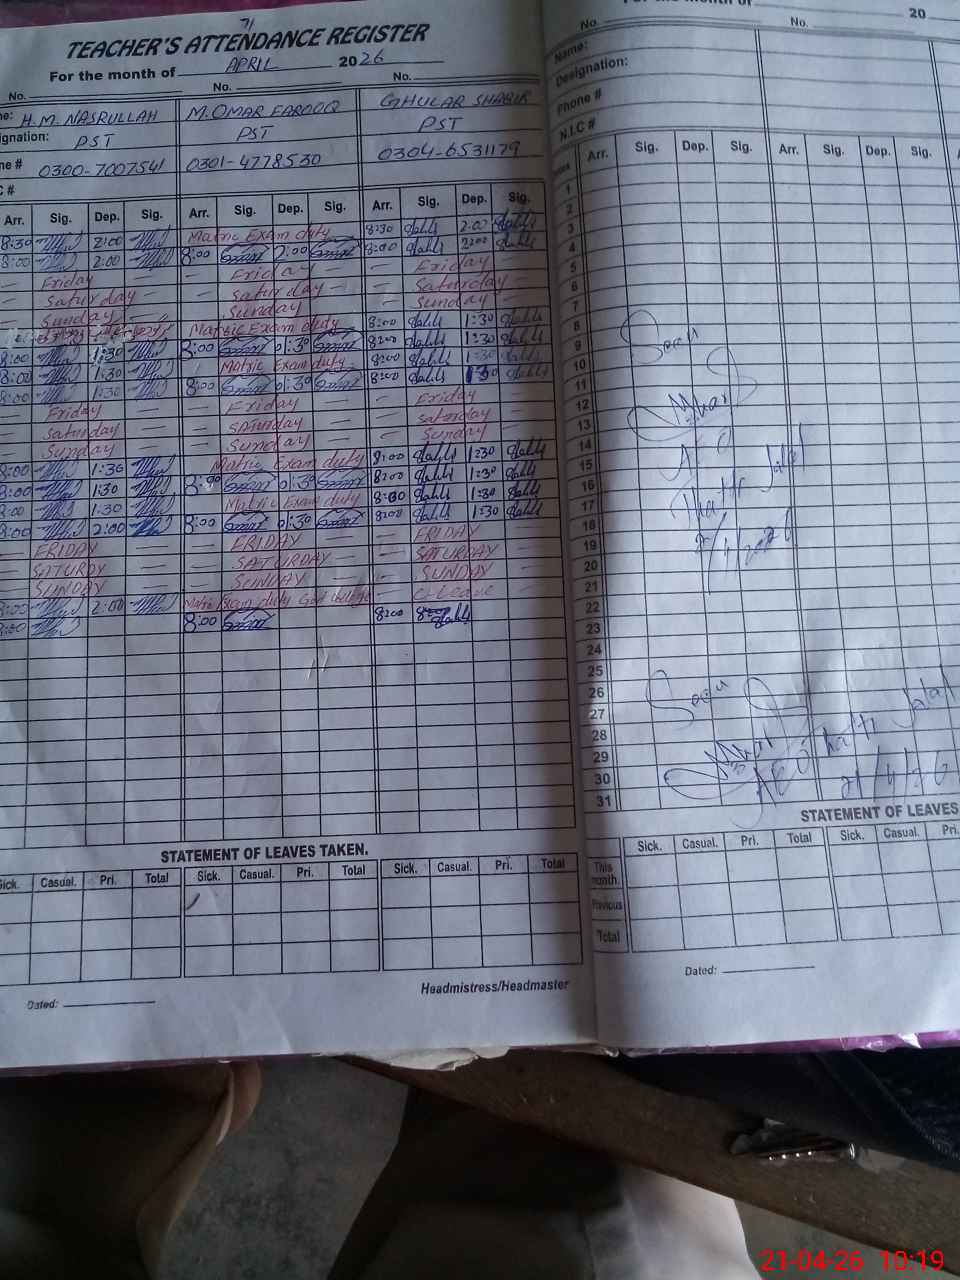 71
TEACHER'S ATTENDANCE REGISTER
For the month of APRIL 2026
No. No. No.
H.M. NASRULLAH M. OMAR FAROOQ GHULAR SHABIR
ignation: PST PST PST
ne # 0300-7007541 0301-4778530 0304-6531179
C #
Arr. Sig. Dep. Sig. Arr. Sig. Dep. Sig. Arr. Sig. Dep. Sig.
8:30 2:00 Matric Exam duty 8:30 2:00
8:00 2:00 8:00 2:00 8:00 2:00
— Friday — — Friday — — Friday —
— Saturday — — Saturday — — Saturday —
— Sunday — — Sunday — — Sunday —
Matric Exam duty 8:00 1:30
8:00 1:30 8:00 01:30 8:00 1:30
8:00 1:30 Matric Exam duty 8:00 1:30
8:00 1:30 8:00 01:30 8:00 1:30
— Friday — — Friday — — Friday —
— Saturday — — Saturday — — Saturday —
— Sunday — — Sunday — — Sunday —
8:00 1:30 Matric Exam duty 8:00 1:30
8:00 1:30 01:30 8:00 1:30
8:00 1:30 Matric Exam duty 8:00 1:30
8:00 2:00 8:00 01:30 8:00 1:30
— FRIDAY — — FRIDAY — — FRIDAY —
— SATURDY — — SATURDAY — — SATURDAY —
— SUNDAY — — SUNDAY — — SUNDAY —
8:00 2:00 Matric Exam duty — C-Leave —
8:00 8:00 8:00
STATEMENT OF LEAVES TAKEN.
Sick. Casual. Pri. Total Sick. Casual. Pri. Total Sick. Casual. Pri. Total
Dated:
Headmistress/Headmaster
For the month of 20
No. No.
Name:
Designation:
Phone #
N.I.C #
Arr. Sig. Dep. Sig. Arr. Sig. Dep. Sig.
1
2
3
4
5
6
7
8
9
10
11
12
13
14
15
16
17
18
19
20
21
22
23
24
25
26
27
28
29
30
31
Seen
7/4/2026
Seen
AEO
21/4/26
STATEMENT OF LEAVES
Sick. Casual. Pri. Total Sick. Casual. Pri.
This month.
Previous
Total
Dated:
21-04-26 10:19